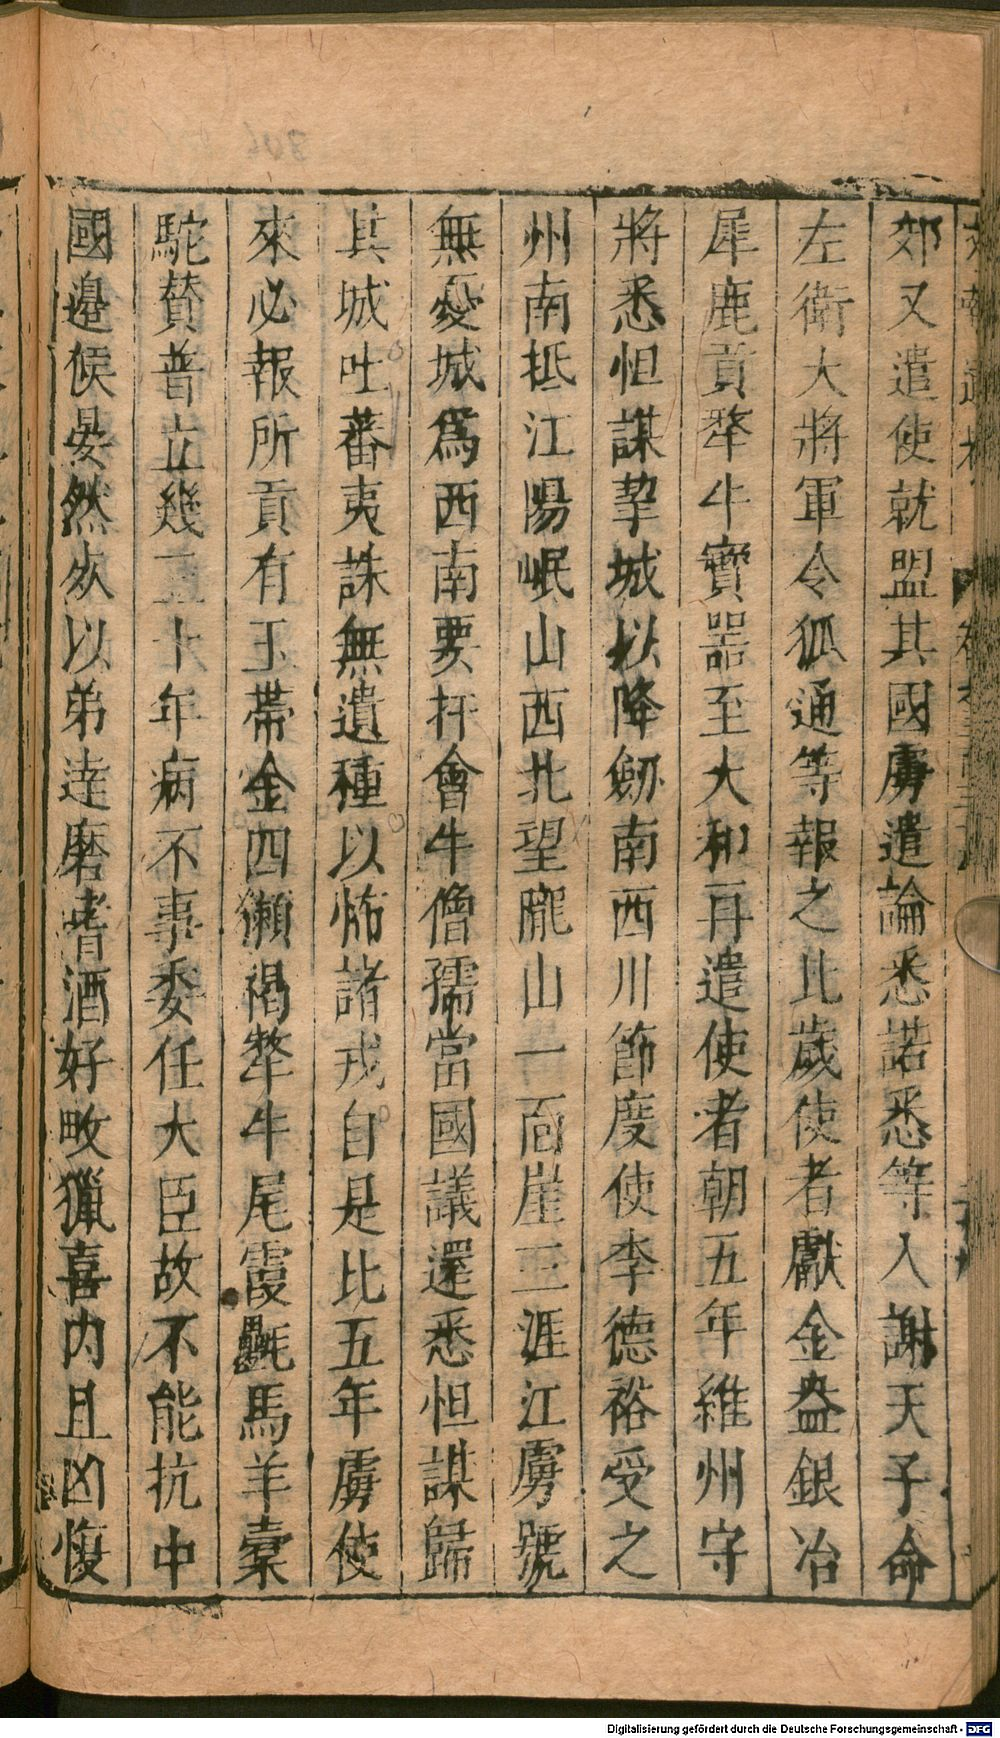 郊又遣使就盟其國虜遣論悉諾悉等入謝天子命
左衛大將軍令狐通等報之比歲使者獻金盎銀冶
犀鹿貢犛牛寶器至大和再遣使者朝五年維州守
將悉怛謀挈城以降劒南西川節度使李德裕受之
州南抵江陽岷山西北望隴山一面崖三涯江虜號
無憂城爲西南要扞會牛僧孺當國議還悉怛謀歸
其城吐蕃夷誅無遺種以怖諸戎自是比五年虜使
來必報所貢有玉帶金四獺褐犛牛尾霞氎馬羊橐
駝賛普立幾三十年病不事委任大臣故不能抗中
國邊候晏然㱠以弟達磨耆酒好畋獵喜内且凶愎
Digitalisierung gefördert durch die Deutsche Forschungsgemeinschaft - DFG